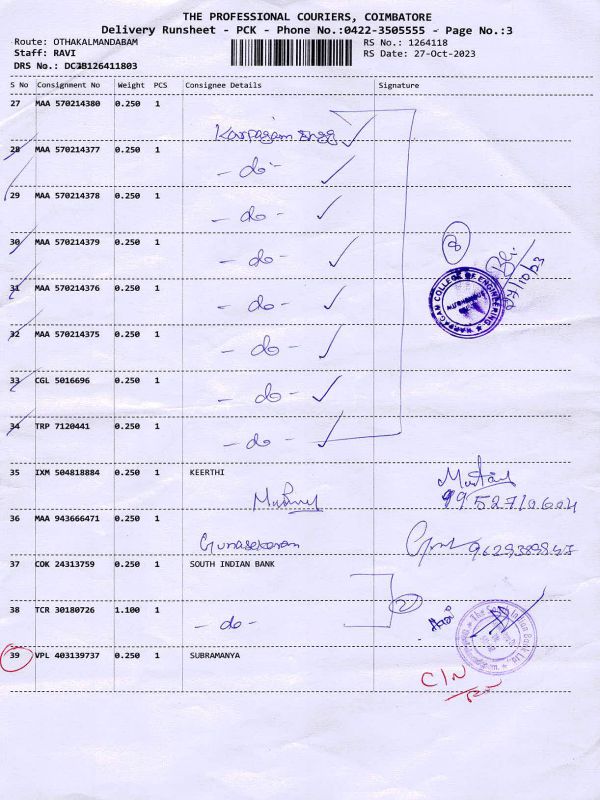 THE PROFESSIONAL COURIERS, COIMBATORE
Delivery Runsheet - PCK - Phone No.:0422-3505555 - Page No.:3
Route: OTHAKALMANDABAM RS No.: 1264118
Staff: RAVI RS Date: 27-Oct-2023
DRS No.:
S No Consignment No Weight PCS Consignee Details Signature
27 MAA 570214380 0.250 1
Karpagam Engg
28 MAA 570214377 0.250 1
- do -
29 MAA 570214378 0.250 1
- do -
30 MAA 570214379 0.250 1
8
- do -
31 MAA 570214376 0.250 1
KARPAGAM COLLEGE OF ENGINEERING
AUTONOMOUS
- do -
32 MAA 570214375 0.250 1
- do -
33 CGL 5016696 0.250 1
- do -
34 TRP 7120441 0.250 1
- do -
35 IXM 504818884 0.250 1 KEERTHI
36 MAA 943666471 0.250 1
Gunasekaran
37 COK 24313759 0.250 1 SOUTH INDIAN BANK
2
38 TCR 30180726 1.100 1
- do -
The South Indian Bank Ltd.
39 VPL 403139737 0.250 1 SUBRAMANYA
C/N